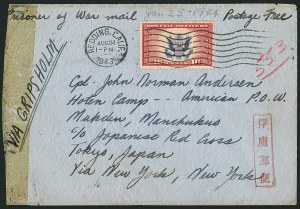 Prisoner of War mail Postage Free
Jan 25-1944
REDDING, CALIF.
AUG 24
1-PM
1943
VIA GRIPSHOLM
Cpl. John Norman Andersen
Hoten Camp -- American P.O.W.
Mukden, Manchukuo
c/o Japanese Red Cross
Tokyo, Japan
Via New York, New York